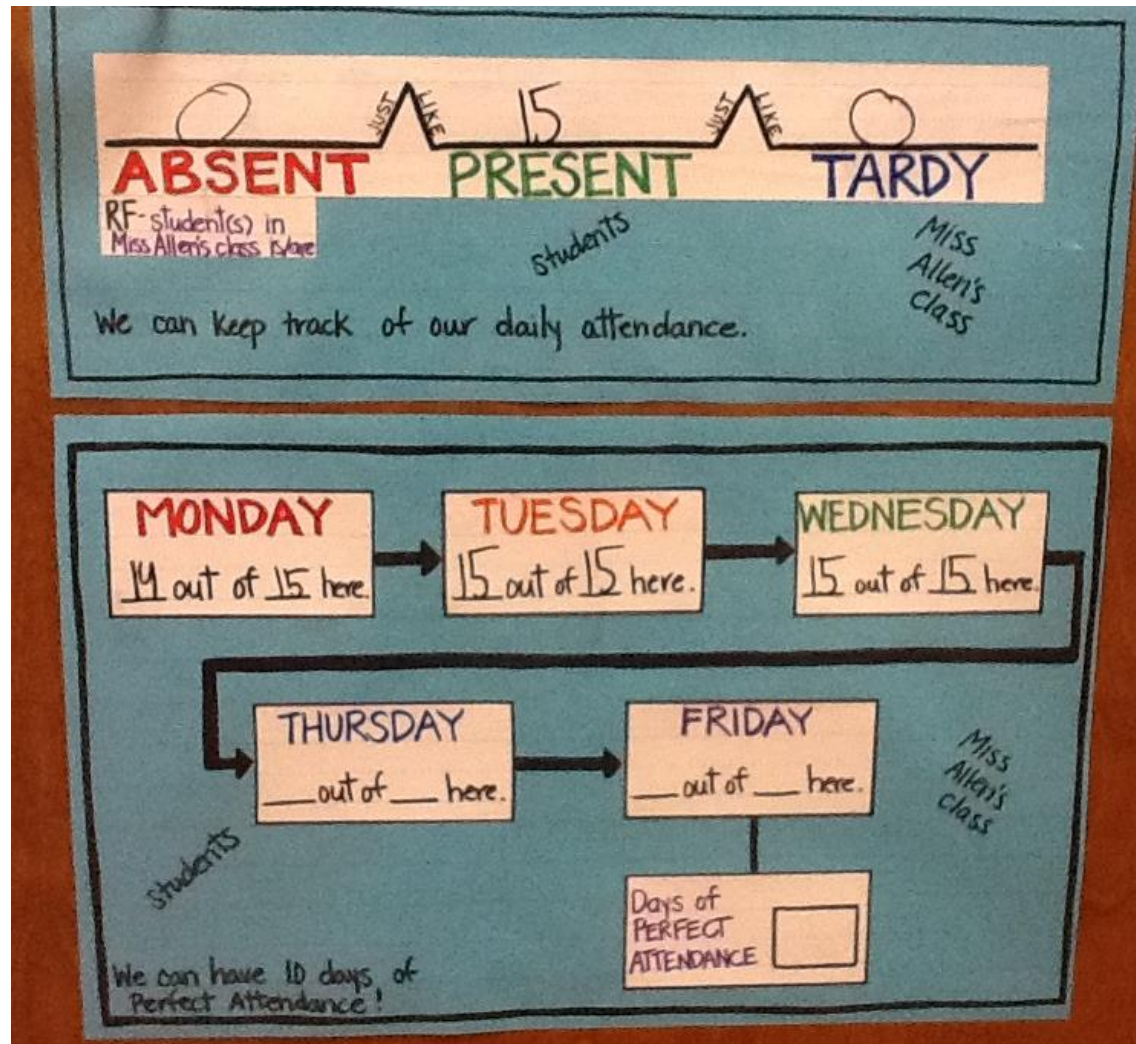 0 JUST LIKE 15 JUST LIKE 0
ABSENT PRESENT TARDY
RF- student(s) in
Miss Allen's class is/are
students
Miss
Allen's
class
We can keep track of our daily attendance.
MONDAY
14 out of 15 here.
TUESDAY
15 out of 15 here.
WEDNESDAY
15 out of 15 here.
THURSDAY
__ out of __ here.
FRIDAY
__ out of __ here.
students
Miss
Allen's
class
Days of
PERFECT
ATTENDANCE
We can have 10 days of
Perfect Attendance!